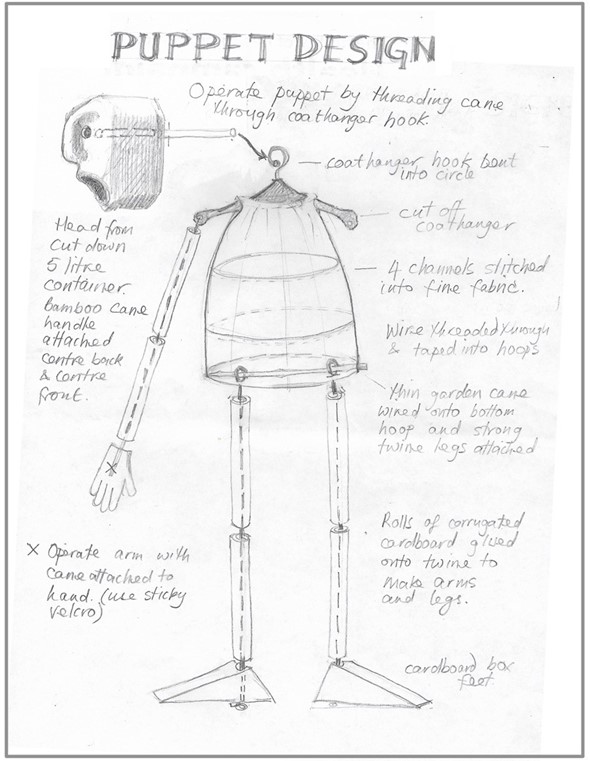 PUPPET DESIGN
Operate puppet by threading cane
through coathanger hook.
coathanger hook bent
into circle
cut off
coathanger
Head from
cut down
5 litre
container
Bamboo cane
handle
attached
centre back
& centre
front.
4 channels stitched
into fine fabric.
Wire threaded through
& taped into hoops
thin garden cane
wired onto bottom
hoop and strong
twine legs attached
X Operate arm with
cane attached to
hand. (use sticky
velcro)
Rolls of corrugated
cardboard glued
onto twine to
make arms
and legs.
cardboard box
feet